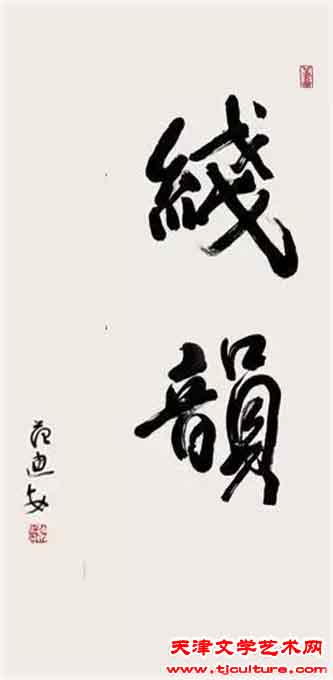 綫韻
范迪安
天津文学艺术网
www.tjculture.com